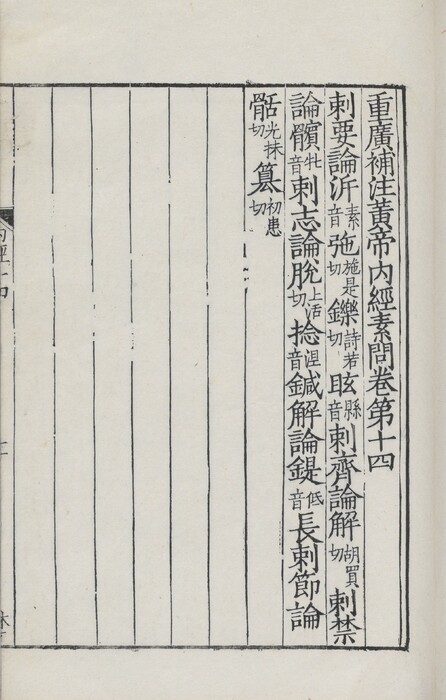 重廣補注黃帝內經素問卷第十四
刺要論泝音素㢮施是切鑠詩若切眩音縣刺齊論解胡買切刺禁
論髕音牝刺志論脫上活切捻音涅鍼解論鍉音低長刺節論
骷光抹切篡初患切
內經十四